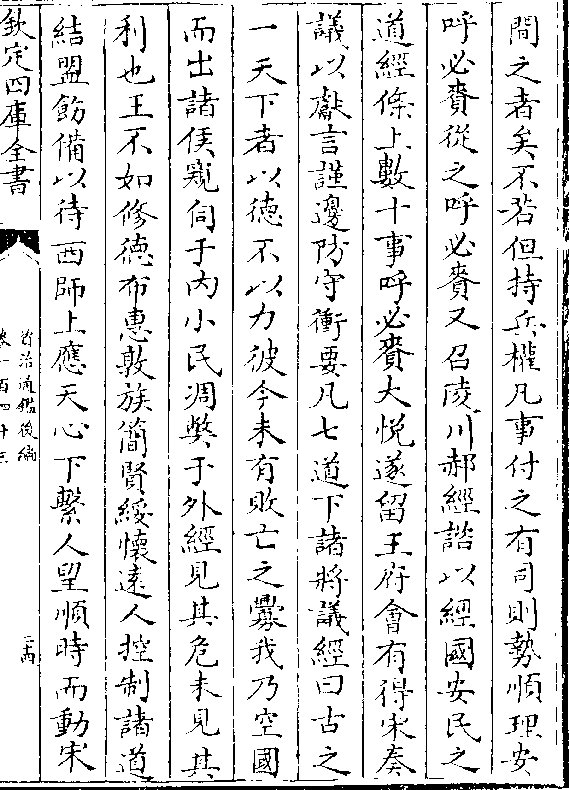 間之者矣不若但持兵權凡事付之有司則勢順理安
呼必賚從之呼必賚又召陵川郝經諮以經國安民之
道經條上數十事呼必賚大悦遂留王府會有得宋奏
議以獻言謹邊防守衝要凡七道下諸將議經曰古之
一天下者以徳不以力彼今未有敗亡之釁我乃空國
而出諸侯窺伺于内小民凋弊于外經見其危未見其
利也王不如修徳布惠敦族簡賢綏懷逺人控制諸道
結盟飭備以待西師上應天心下繫人望順時而動宋
欽定四庫全書
資治通鑑後編
卷一百四十三